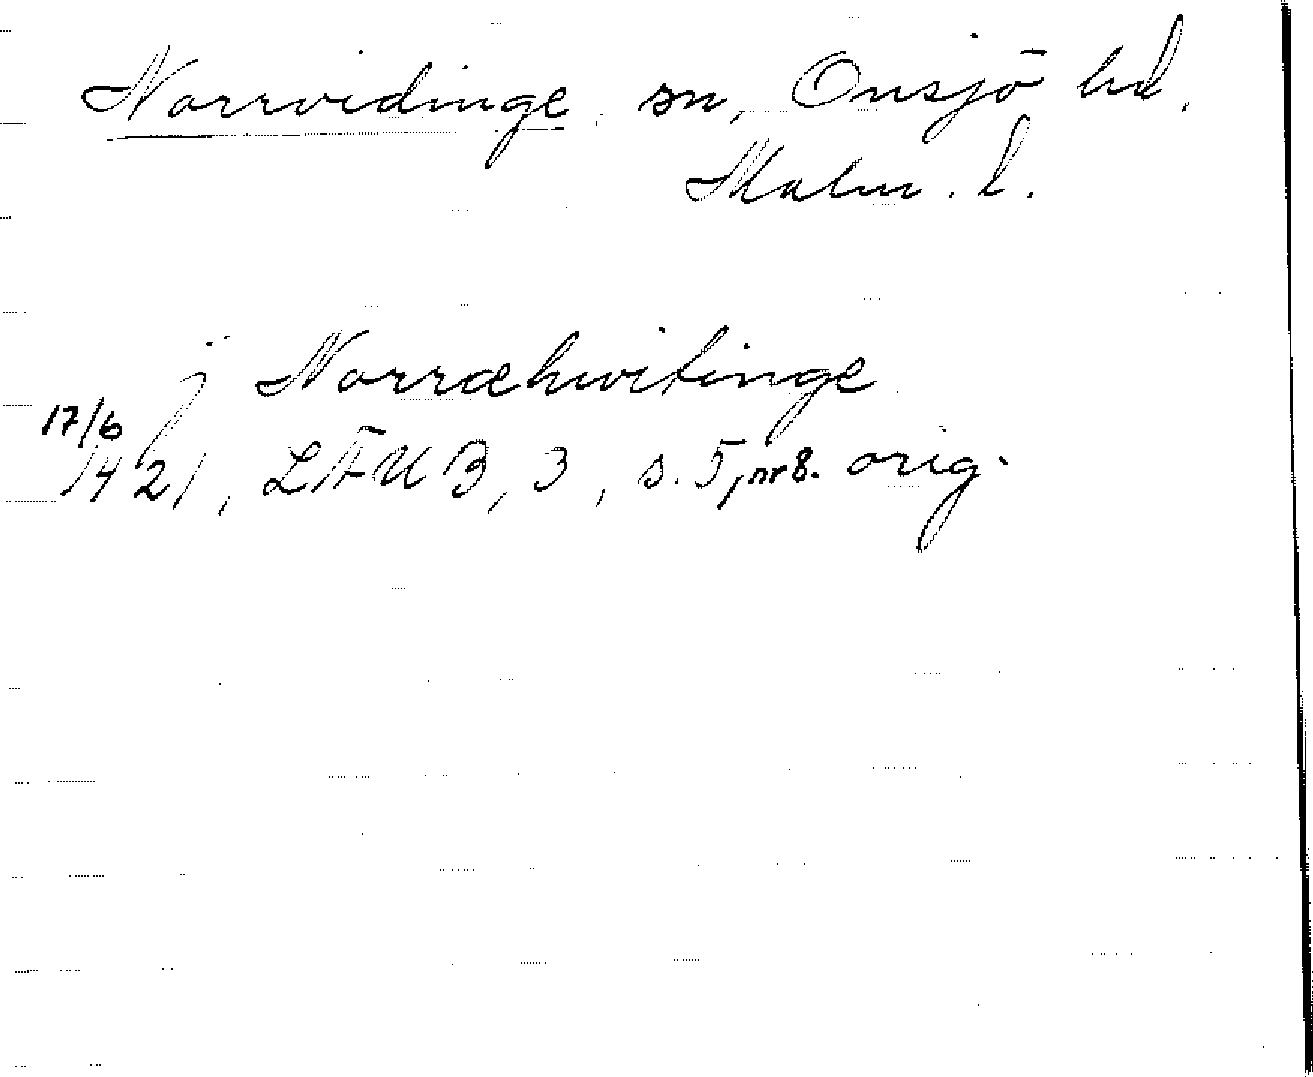 Norrvidinge sn, Onsjö hd.
Malm. l.
j Norræhwitinge
17/6
1421, LÄUB, 3, s. 5, nr 8. orig.